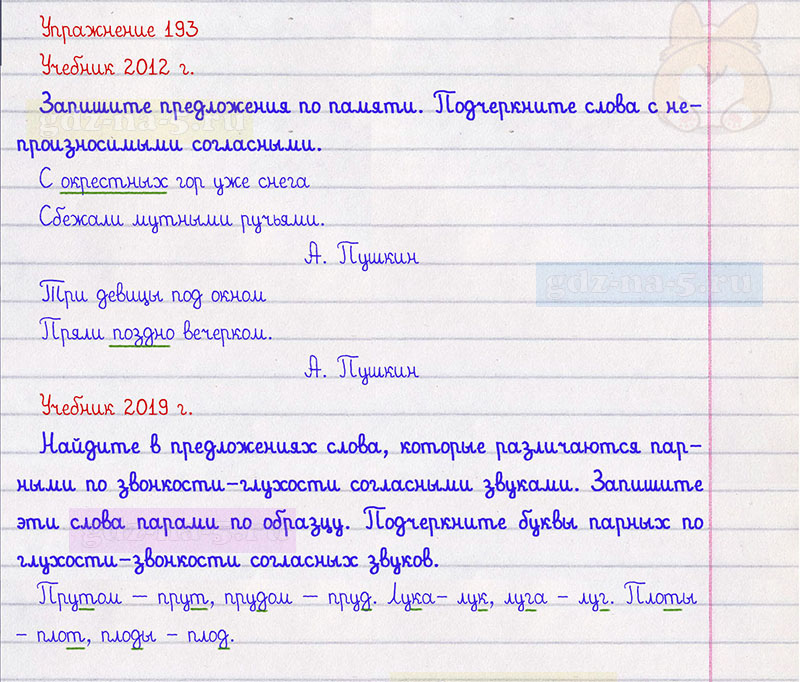 Упражнение 193
Учебник 2012 г.
Запишите предложения по памяти. Подчеркните слова с не-
gdz-na-5.ru
произносимыми согласными.
С окрестных гор уже снега
Сбежали мутными ручьями.
А. Пушкин
gdz-na-5.ru
Три девицы под окном
Пряли поздно вечерком.
А. Пушкин
Учебник 2019 г.
Найдите в предложениях слова, которые различаются пар-
ными по звонкости-глухости согласными звуками. Запишите
эти слова парами по образцу. Подчеркните буквы парных по
gdz-na-5.ru
глухости-звонкости согласных звуков.
Прутом – прут, прудом – пруд. Лука- лук, луга - луг. Плоты
- плот, плоды - плод.